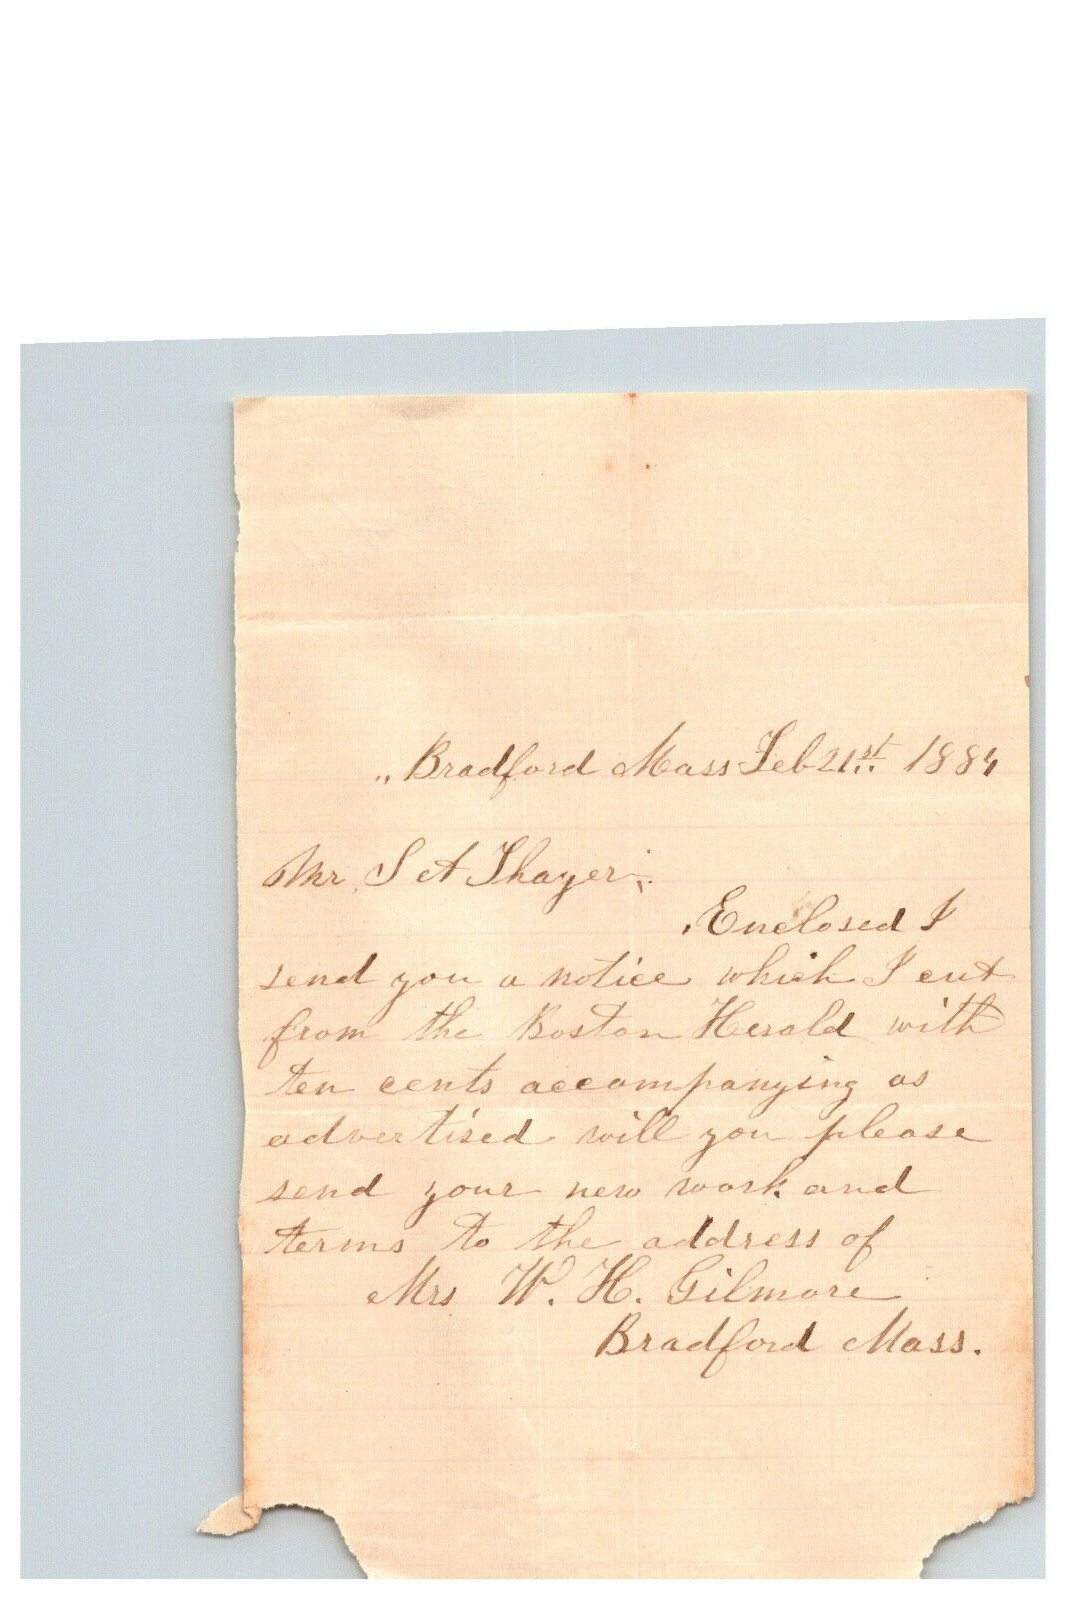 Bradford Mass Feb 21st 1884
Mr. S A Thayer;
Enclosed I
send you a notice which I cut
from the Boston Herald with
ten cents accompanying as
advertised will you please
send your new work and
terms to the address of
Mrs W. H. Gilmore
Bradford Mass.